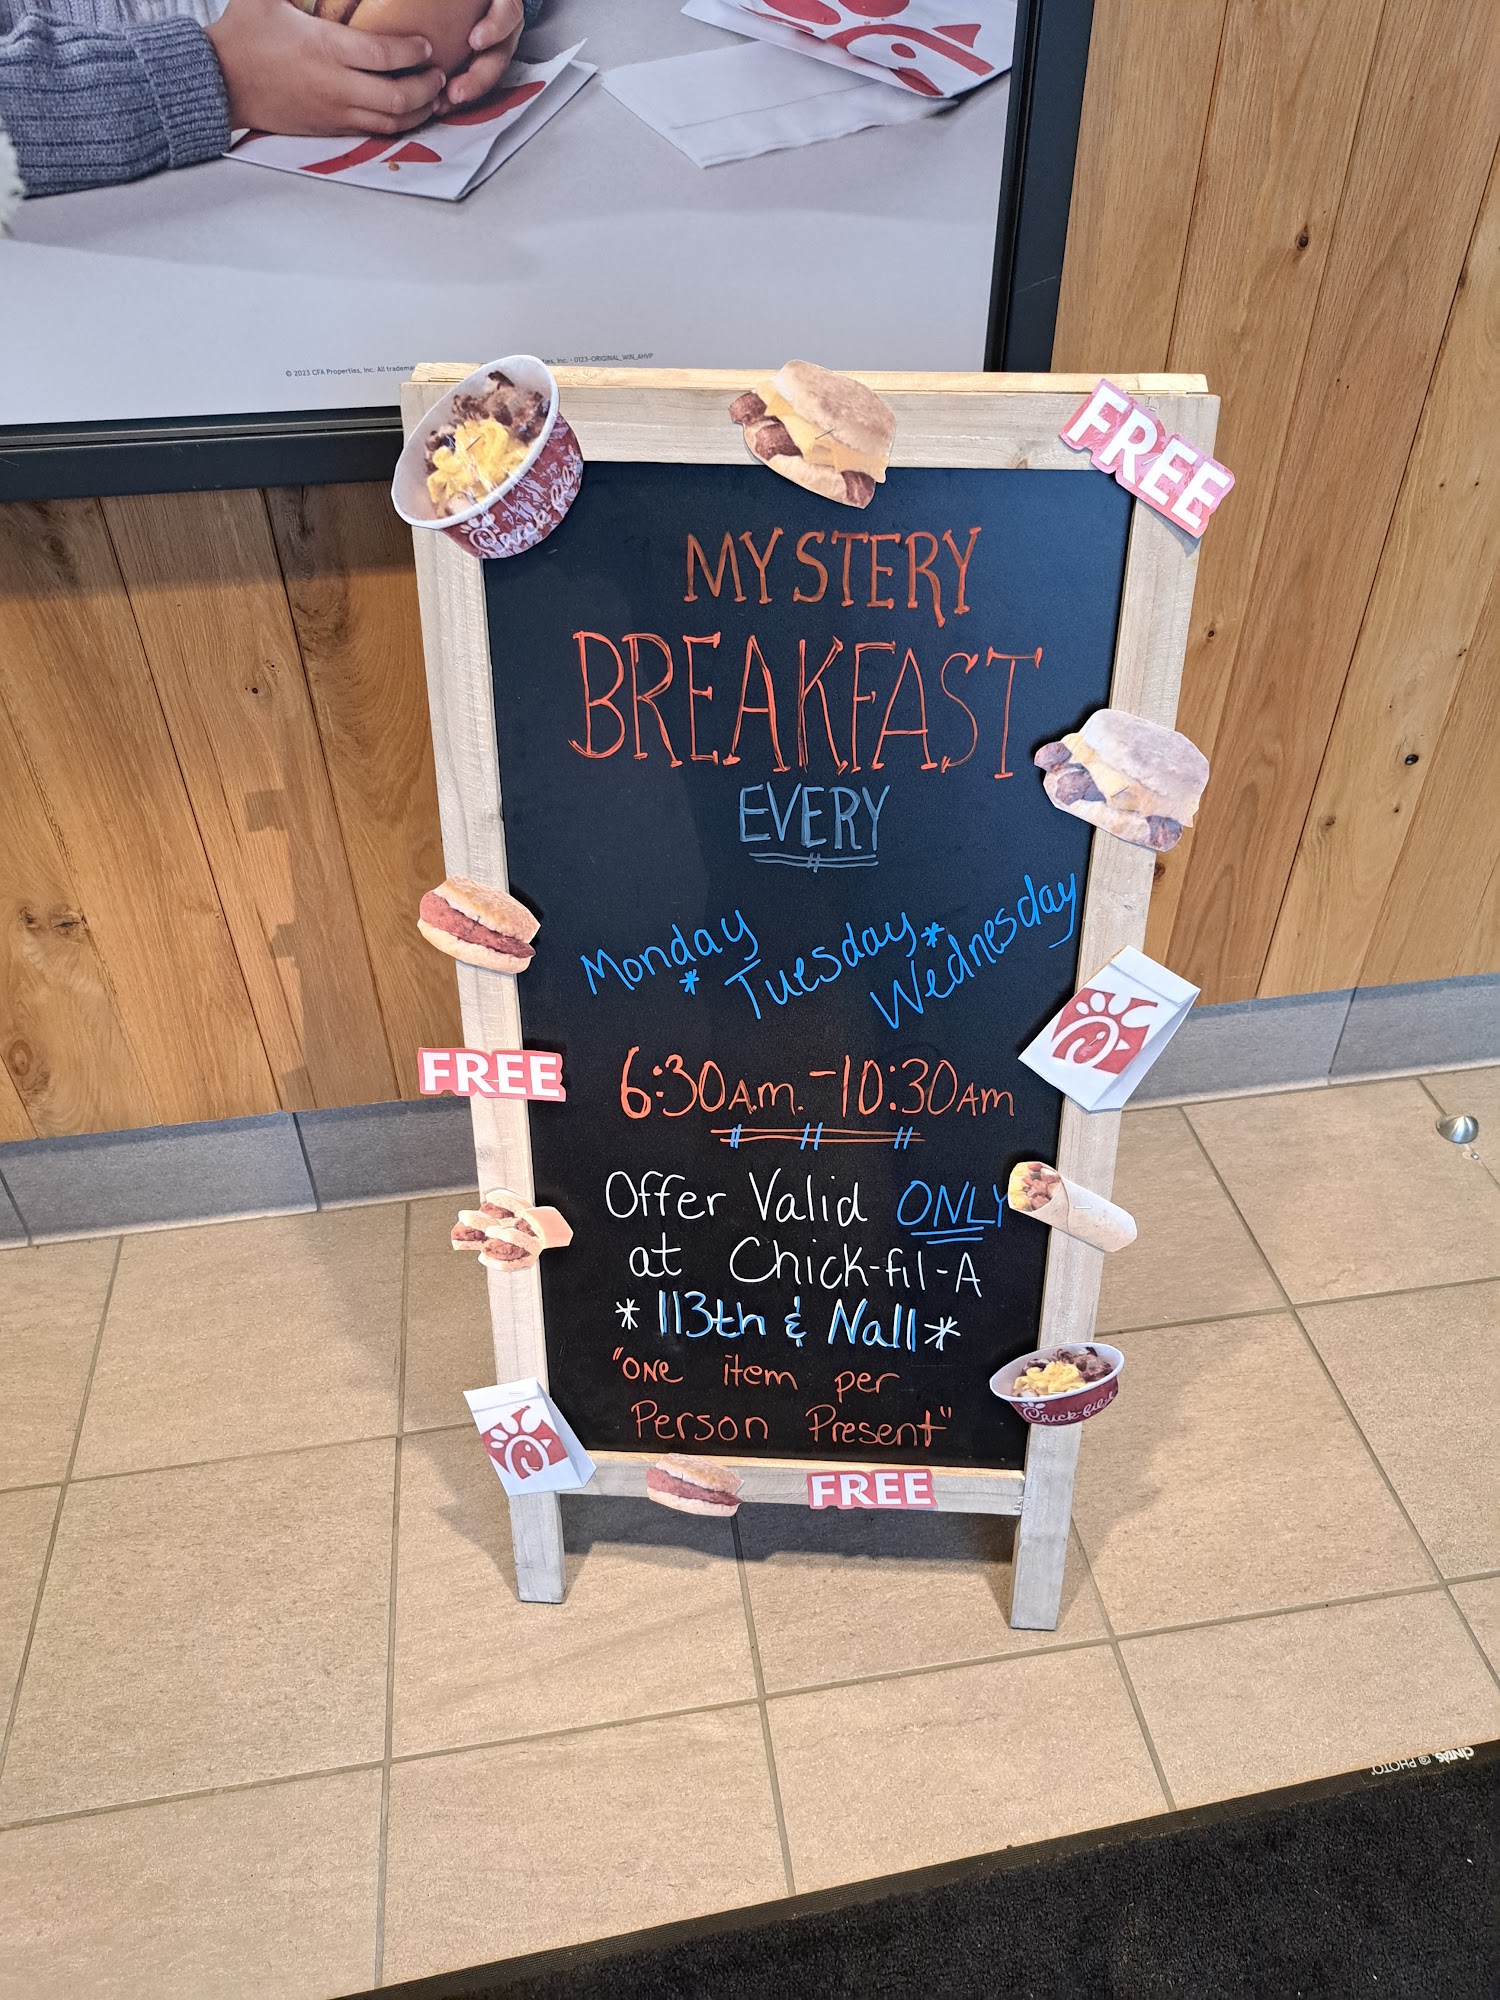 © 2023 CFA Properties, Inc. All tradema
ies, Inc. - 0123-ORIGINAL_WIN_AHVP
Chick-fil-
FREE
MYSTERY
BREAKFAST
EVERY
Monday * Tuesday * Wednesday
6:30AM. - 10:30AM
FREE
Offer Valid ONLY
at Chick-fil-A
* 113th & Nall *
"ONE item per
Person Present"
Chick-fil-A
FREE
CINTAS PHOTO